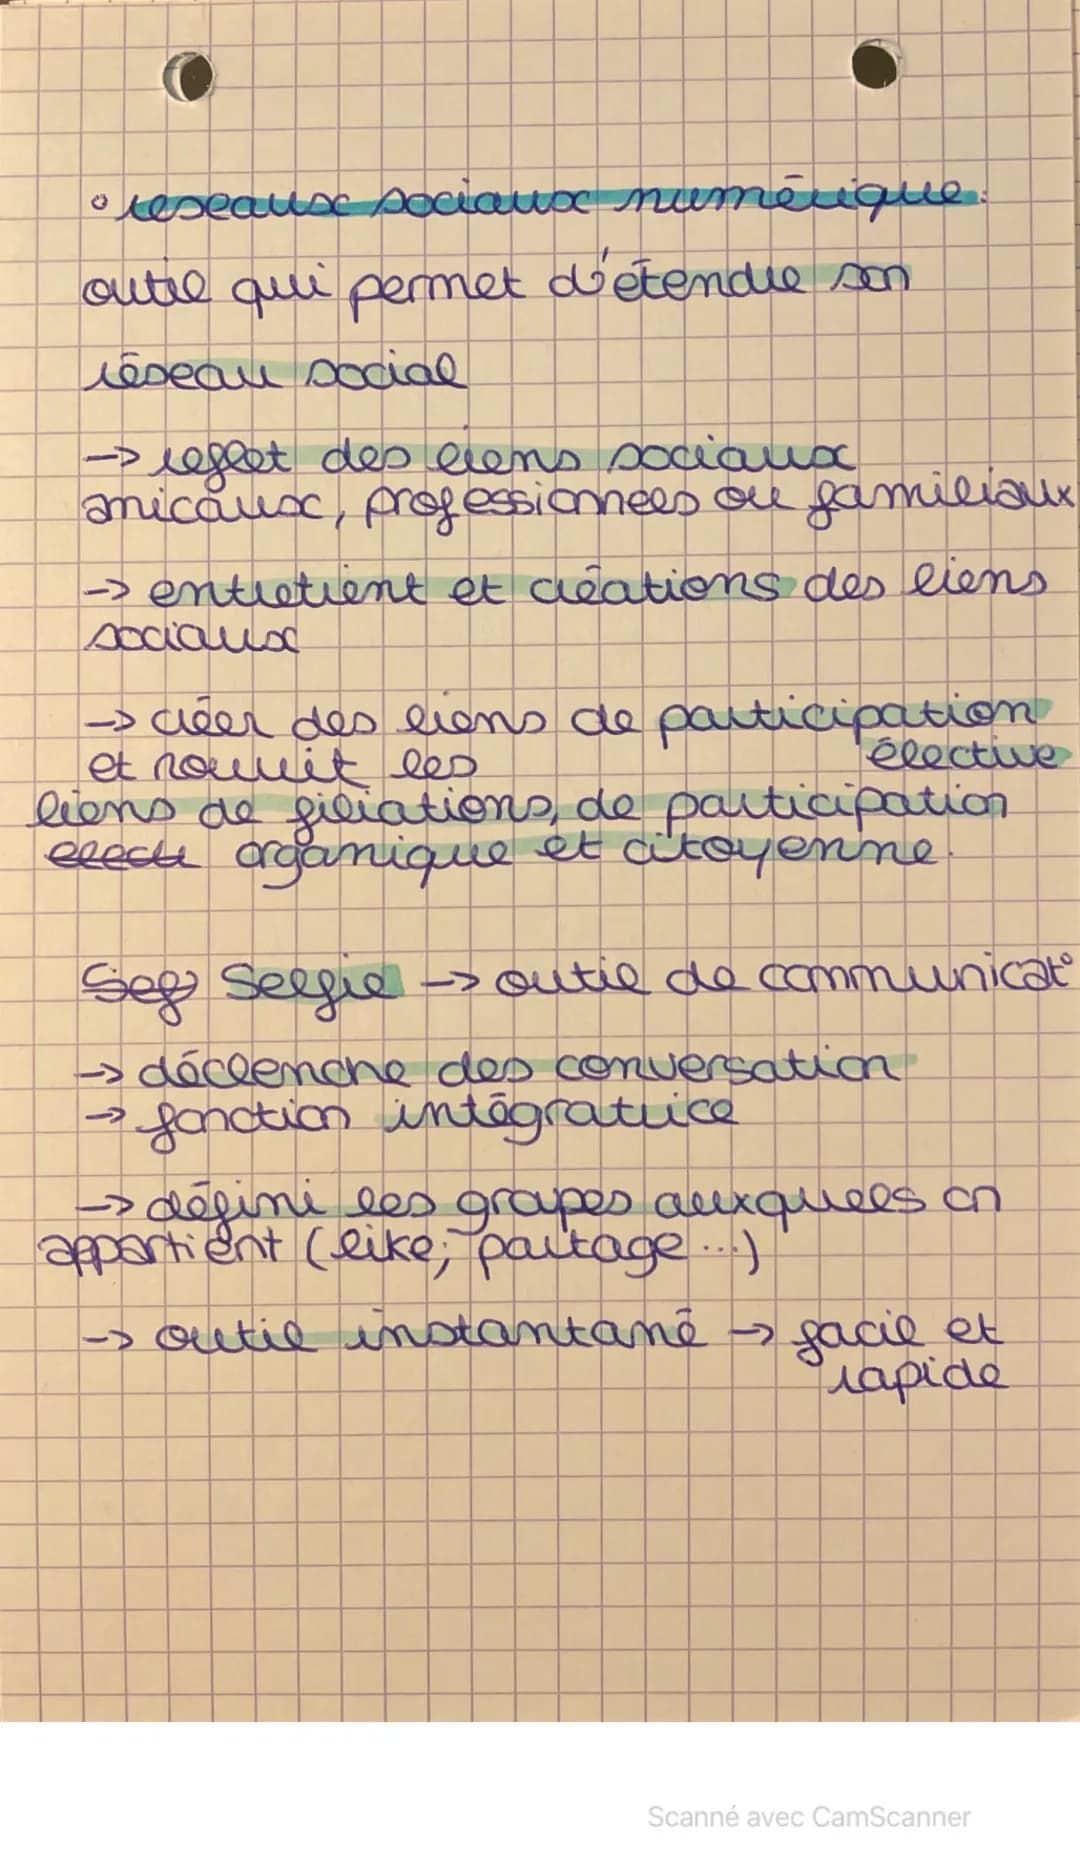 ° reseaux sociaux numérique:
outil qui permet d'étendre son
réseau social
-> reflet des liens sociaux
amicaux, professionnels ou familiaux
-> entretient et créations des liens
sociaux
-> créer des liens de participation
élective
et nourrit les
liens de filiations, de participation
electi organique et citoyenne.
Self Selfie -> outil de communicat°
-> déclenche des conversation
-> fonction intégratrice
-> défini les groupes auxquels on
appartient (like, partage...)
-> outil instantané -> facil et
rapide
Scanné avec CamScanner